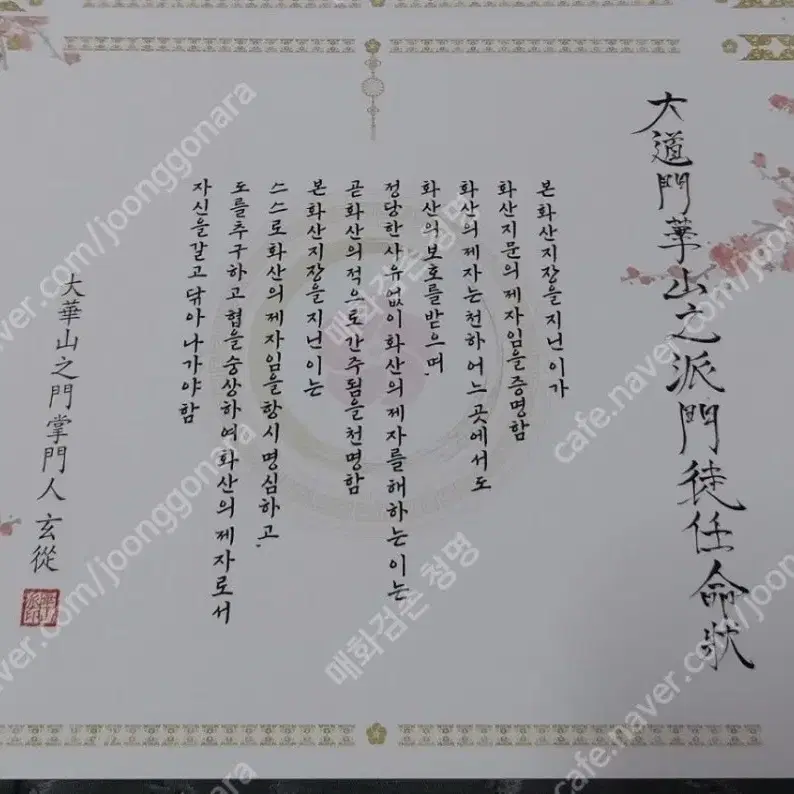 大道門華山之派門徒任命狀
본 화산지장을 지닌 이가
화산지문의 제자임을 증명함
화산의 제자는 천하 어느 곳에서도
화산의 보호를 받으며
정당한 사유 없이 화산의 제자를 해하는 이는
곧 화산의 적으로 간주됨을 천명함
본 화산지장을 지닌 이는
스스로 화산의 제자임을 항시 명심하고
도를 추구하고 협을 숭상하여 화산의 제자로서
자신을 갈고 닦아 나가야 함
大華山之門掌門人 玄從
cafe.naver.com/joonggonara
매화검존 청명